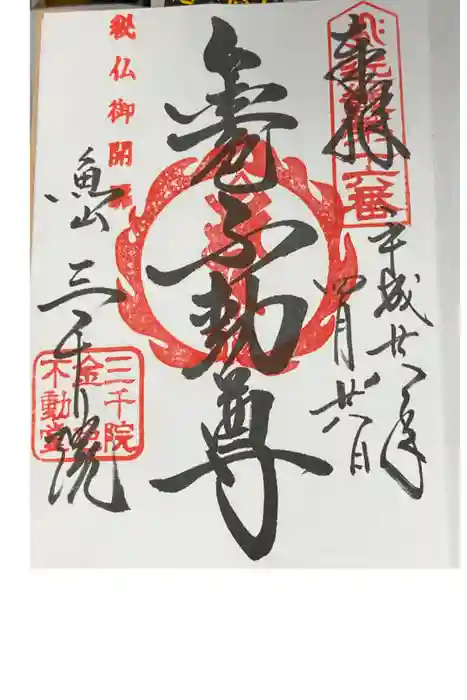 奉拝
平成廿八年
四月廿八日
金色不動尊
秘仏御開扉
魚山 三千院
三千院
金色
不動堂